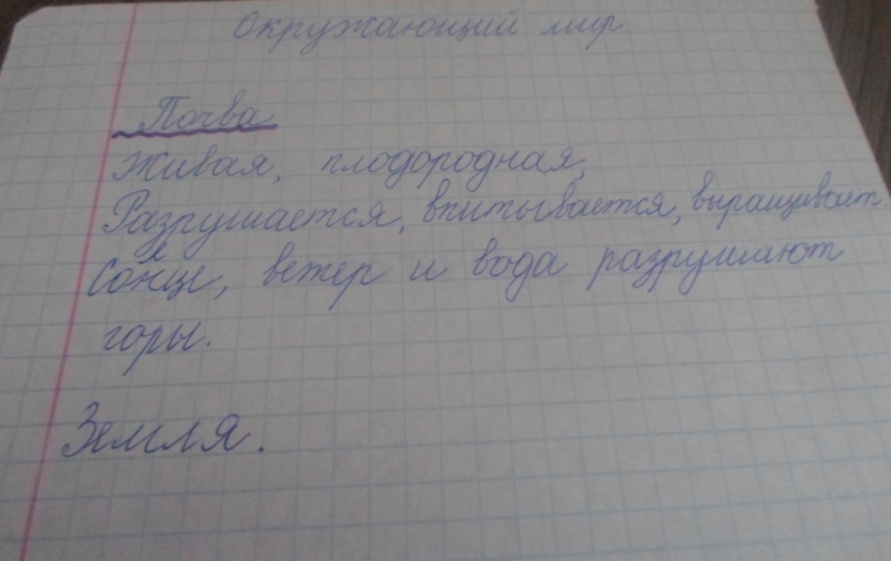 Окружающий мир
Почва
Живая, плодородная,
Разрушается, впитывается, выращивает
Солнце, ветер и вода разрушают
горы.
Земля.